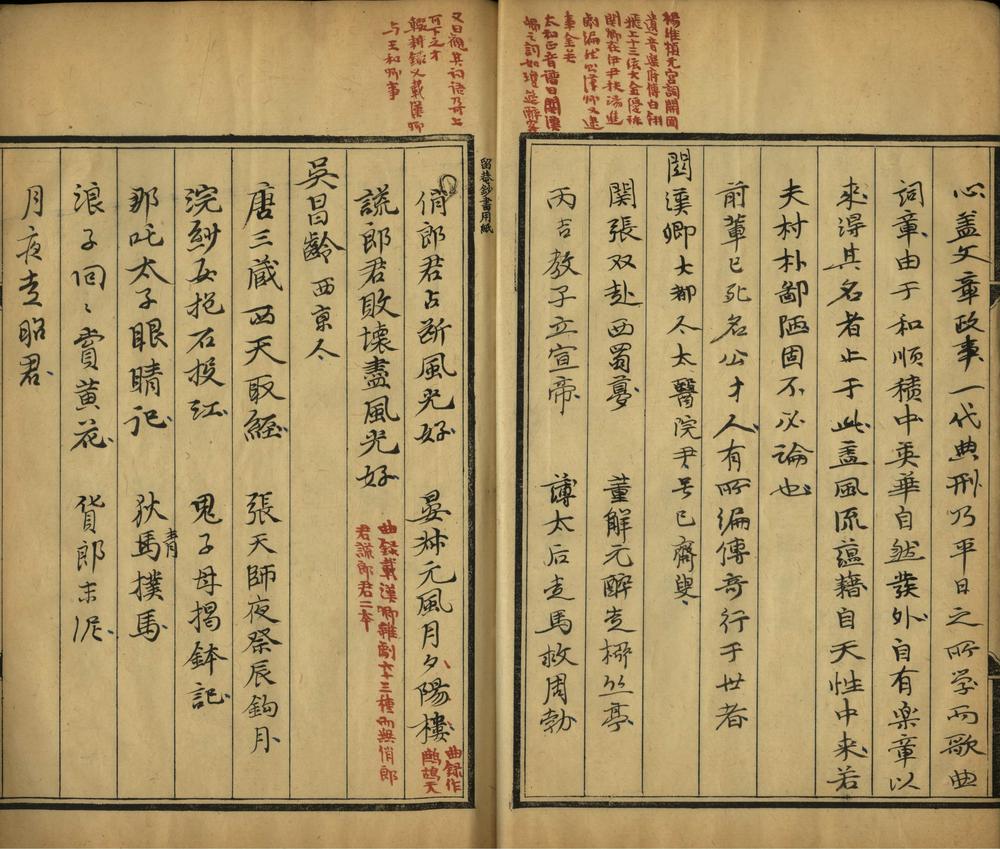 楊維楨元宮詞開國
遺音樂府傳白翎
飛上十三弦大金優諫
関卿在伊尹扶湯進
劇編
太和正音譜曰関漢
卿之詞如瓊筵醉客
心盖文章政事一代典刑乃平日之所学而歌曲
詞章由于和順積中英華自然発外自有楽章以
來得其名者止于此盖風流蘊藉自天性中来若
夫村朴鄙陋固不必論也
前輩已死名公才人有所編傳奇行于世者
関漢卿大都人太醫院尹号已齋叟
関張双赴西蜀夢 董解元醉走柳丝亭
丙吉教子立宣帝 薄太后走馬救周勃
留菴鈔書用紙
又曰觀其詞語乃可上
可下之才
輟耕録又載漢卿
与王和卿事
俏郎君占断風光好 晏叔元風月夕陽樓
曲録作
鷓鴣天
謊郎君敗壊盡風光好
曲録載漢卿雜劇六十三種而無俏郎
君謊郎君二本
吳昌齡 西京人
唐三蔵西天取經 張天師夜祭辰鈎月
浣紗女抱石投江 鬼子母揭鉢記
那吒太子眼睛記 狄青撲馬
浪子回〻賞黄花 貨郎末泥
月夜走昭君